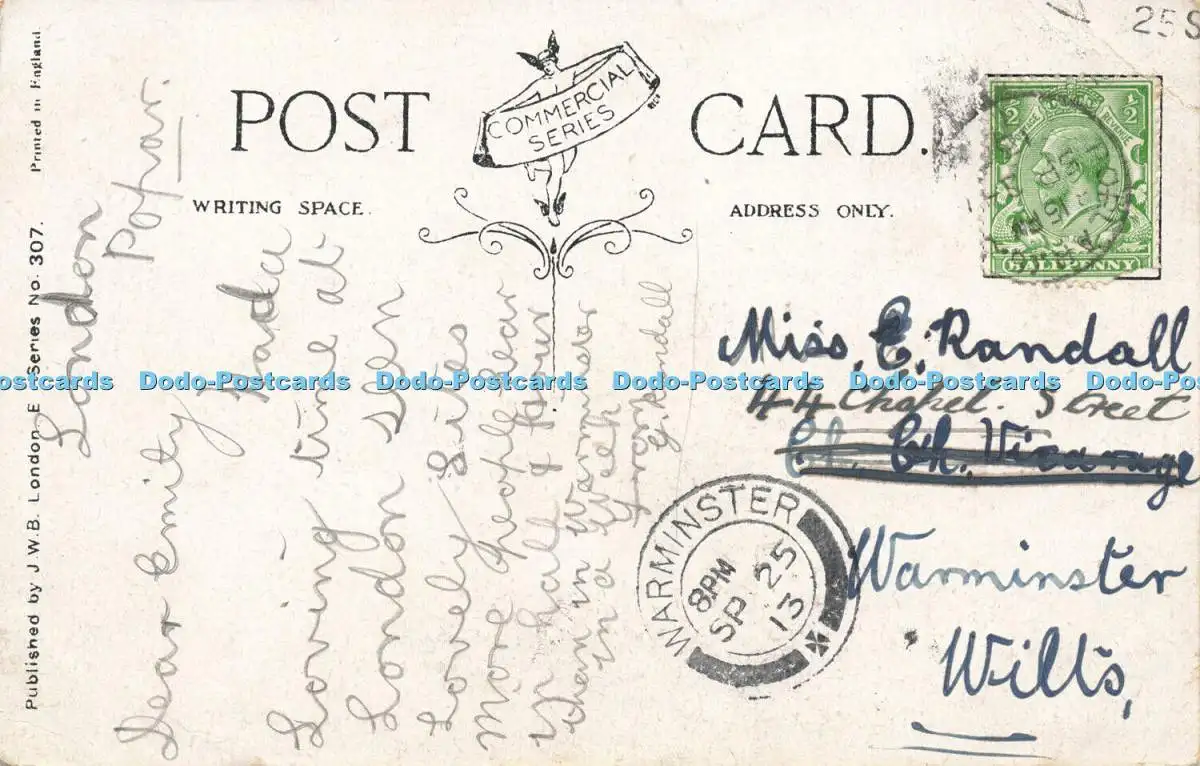 POST CARD.
COMMERCIAL
SERIES
WRITING SPACE.
ADDRESS ONLY.
Printed in England.
Published by J.W.B. London. E Series No. 307.
255
1/2 1/2
HALFPENNY
London
Poplar.
Dear Emity
Loving time at
London seen
Lovely Sites
More people hear
in half of hour
then in warmistor
in a Week
from
G. Randall
Miss. E. Randall
44 Chapel. Street
Ch. Vicarage
Warminster
Wilts,
WARMINSTER
8PM
SP 25
13
Dodo-Postcards Dodo-Postcards Dodo-Postcards Dodo-Postcards Dodo-Postcards